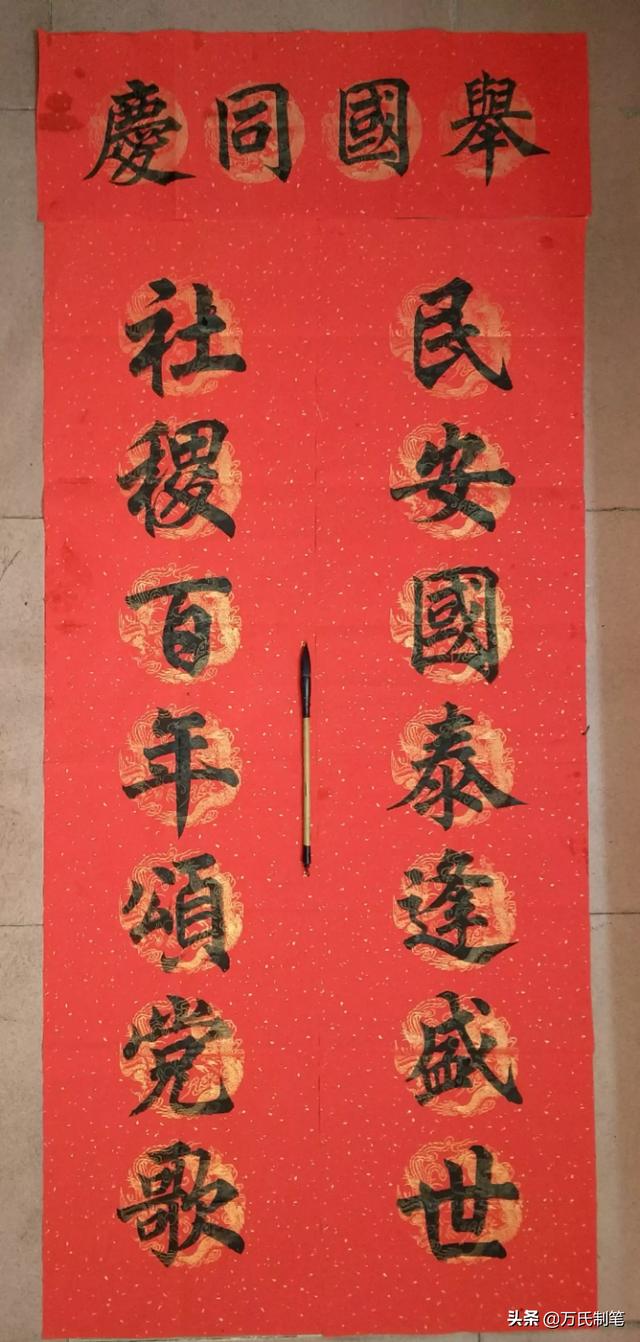 舉國同慶
民安國泰逢盛世
社稷百年頌党歌
头条 @万氏制笔